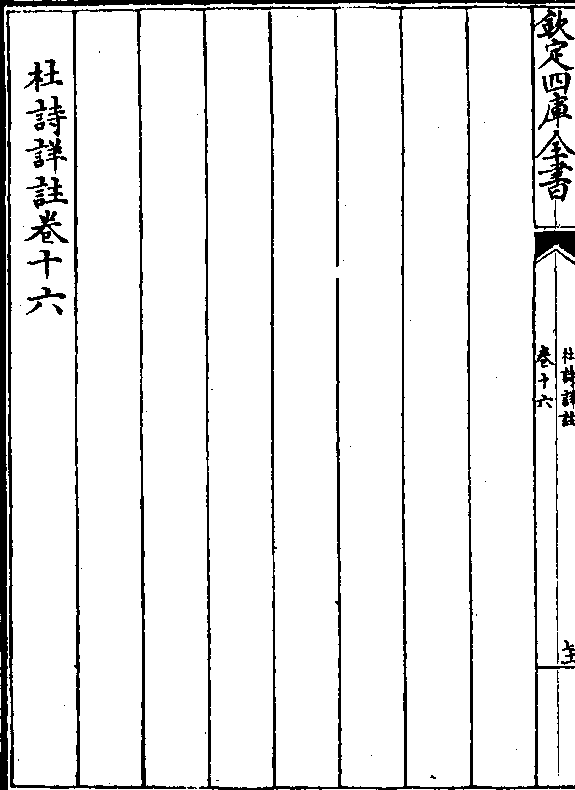 欽定四庫全書
杜詩詳註
卷十六
杜詩詳註卷十六